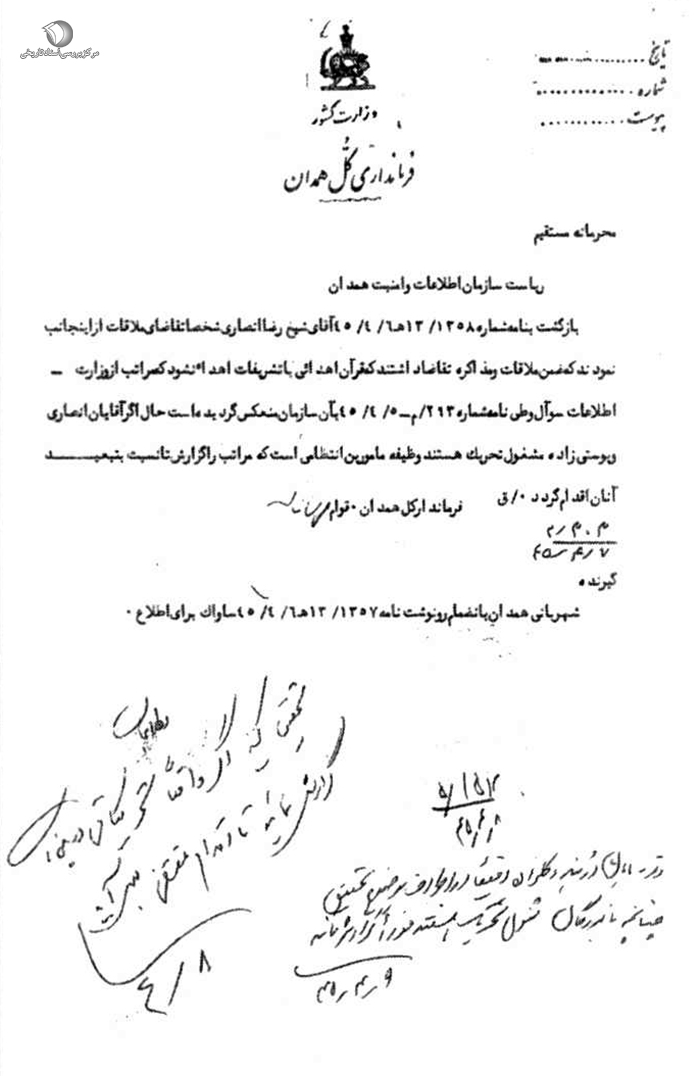 مرکز بررسی اسناد تاریخی
تاریخ
شماره
پیوست
وزارت کشور
فرمانداری کل همدان
محرمانه مستقیم
ریاست سازمان اطلاعات وامنیت همدان
بازگشت بنامه شماره ۱۳۵۸/ ۱۳هـ ۶/ ۴/ ۴۵ آقای شیخ رضا انصاری شخصا تقاضای ملاقات از اینجانب
نمودند که ضمن ملاقات ومذاکره تقاضا داشتند که قرآن اهدائی با تشریفات اهداء نشود که مراتب از وزارت ـ
اطلاعات سوآل وطی نامه شماره ۲۹۳/م ـ ۵/ ۴/ ۴۵ بآن سازمان منعکس گردیده است حال اگر آقایان انصاری
وپوستی زاده مشغول تحریك هستند وظیفه مامورین انتظامی است که مراتب را گزارش تا نسبت بتبعیـــــد
آنان اقدام گردد ۰/ ق
فرماندار کل همدان ۰ قوام
۴۵ـ۴ـ۷
گیرنده
شهربانی همدان بانضمام رونوشت نامه ۱۳۵۷/ ۱۳هـ ۶/ ۴/ ۴۵ ساواك برای اطلاع ۰
تحقیق کنید اگر واقعاً
گزارش نمائید تا اقدام مقتضی بعمل آید
۴/۸
۴۵/۴/۸
دقیقاً در اطراف موضوع تحقیق
چنانچه نامبردگان مشغول تحریک هستند فوراً گزارش نمائید
۴۵ر۴ر۹